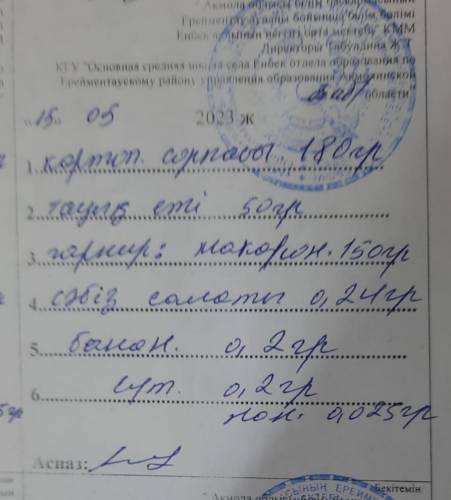 " Ақмола облысы білім басқармасының
Ерейментау ауданы бойынша білім бөлімі
Еңбек ауылының негізгі орта мектебі" КММ
Директоры Габдулина Ж.Т
КГУ "Основная средняя школа села Енбек отдела образования по
Ерейментаускому району управления образования Акмолинской
области"
"15" 05 2023 ж
1. картоп. сорпасы. 180гр
2. тауық еті 50гр
3. гарнир: макарон. 150гр
4. сәбіз салаты 0,24гр
5. банан. 0,2гр
6. сүт. 0,2гр
нан. 0,025гр
Аспаз:
Бекітемін